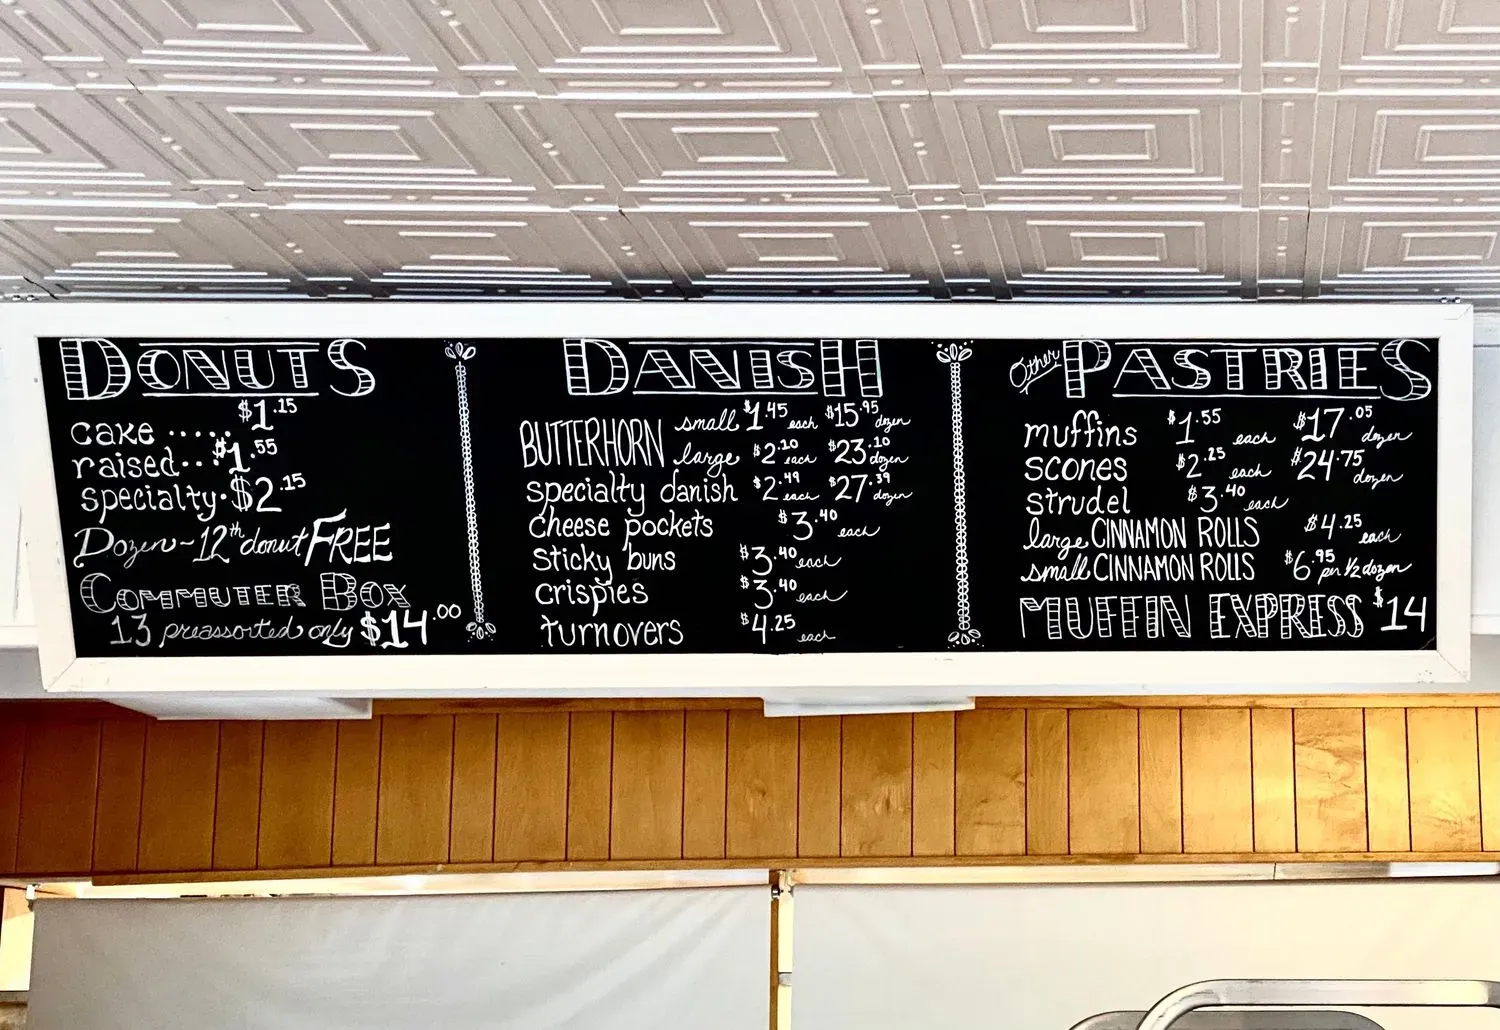 DONUTS
cake ..... $1.15
raised... $1.55
specialty. $2.15
Dozen ~ 12th donut FREE
COMMUTER BOX
13 preassorted only $14.00
DANISH
BUTTERHORN small $1.45 each $15.95 dozen
large $2.10 each $23.10 dozen
specialty danish $2.49 each $27.39 dozen
cheese pockets $3.40 each
sticky buns $3.40 each
crispies $3.40 each
turnovers $4.25 each
Other PASTRIES
muffins $1.55 each $17.05 dozen
scones $2.25 each $24.75 dozen
strudel $3.40 each
large CINNAMON ROLLS $4.25 each
small CINNAMON ROLLS $6.95 per 1/2 dozen
MUFFIN EXPRESS $14